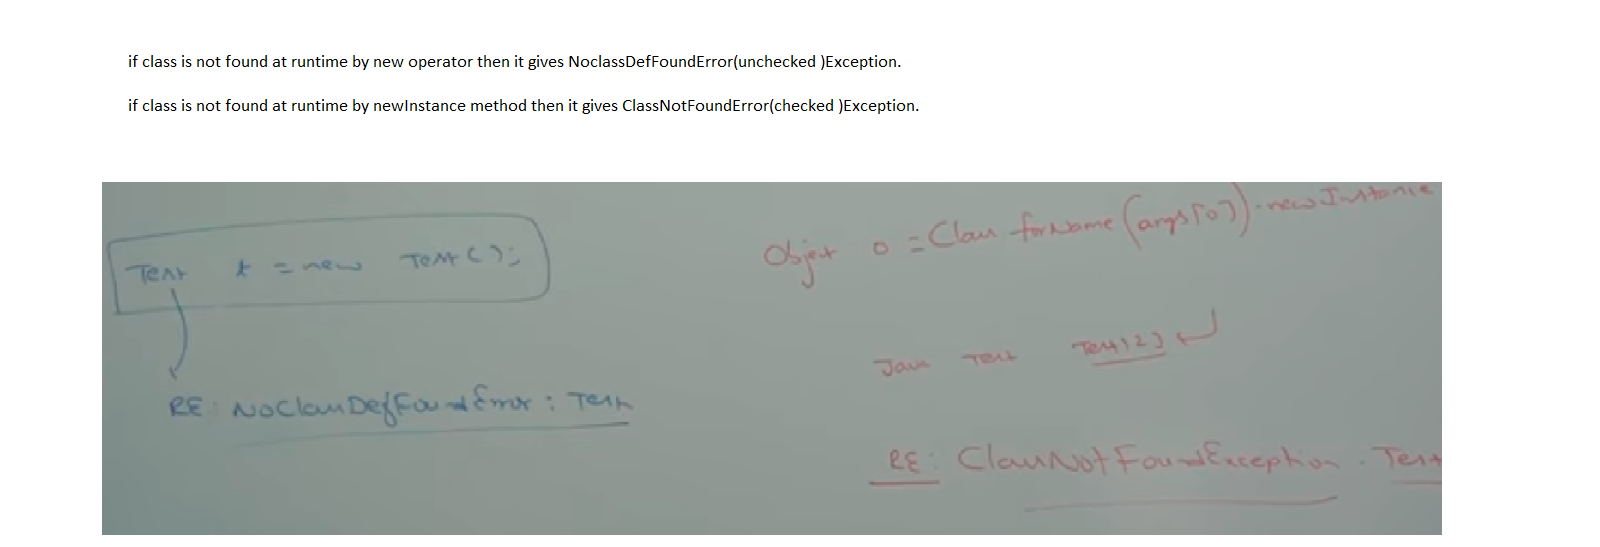 if class is not found at runtime by new operator then it gives NoclassDefFoundError(unchecked )Exception.
if class is not found at runtime by newInstance method then it gives ClassNotFoundError(checked )Exception.
Test t = new Test();
RE: NoClassDefFoundError: Test
Object o = Class.forName(args[0]).newInstance
Java Test Test123 ↵
RE: ClassNotFoundException: Test